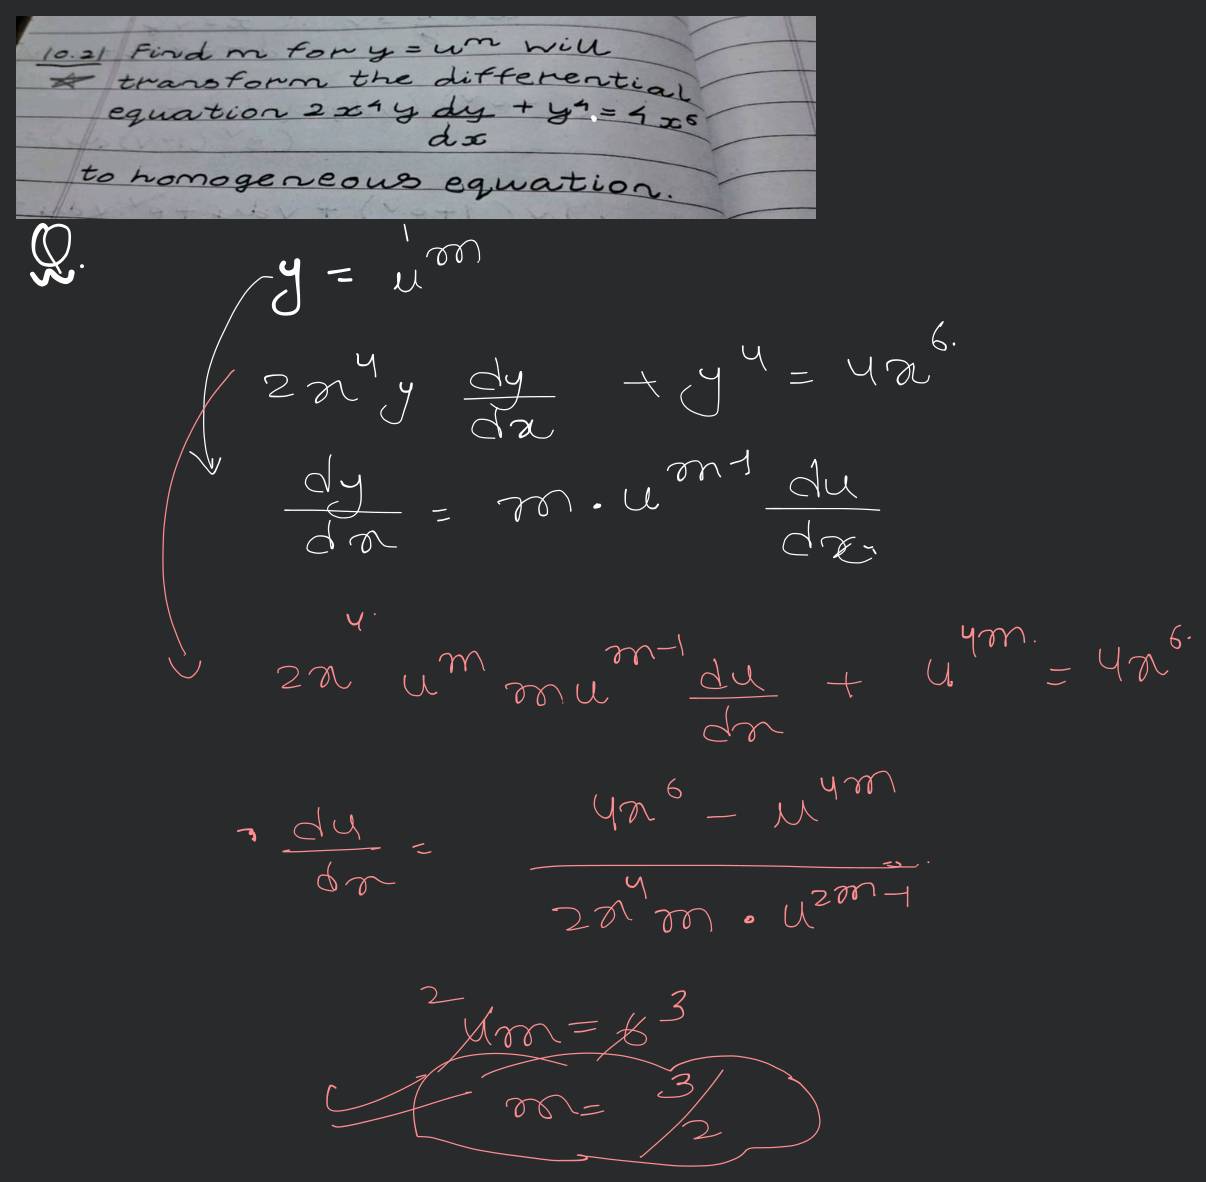 10.21 Find m for y = u^m will
transform the differential
equation 2x⁴y dy/dx + y⁴ = 4x⁶
to homogeneous equation.
Q.
y = u^m
2x⁴y dy/dx + y⁴ = 4x⁶.
dy/dx = m · u^(m-1) du/dx
2x⁴ u^m m u^(m-1) du/dx + u^(4m) = 4x⁶.
du/dx = (4x⁶ - u^(4m)) / (2x⁴ m · u^(2m-1))
2 4m = 6 3
m = 3/2